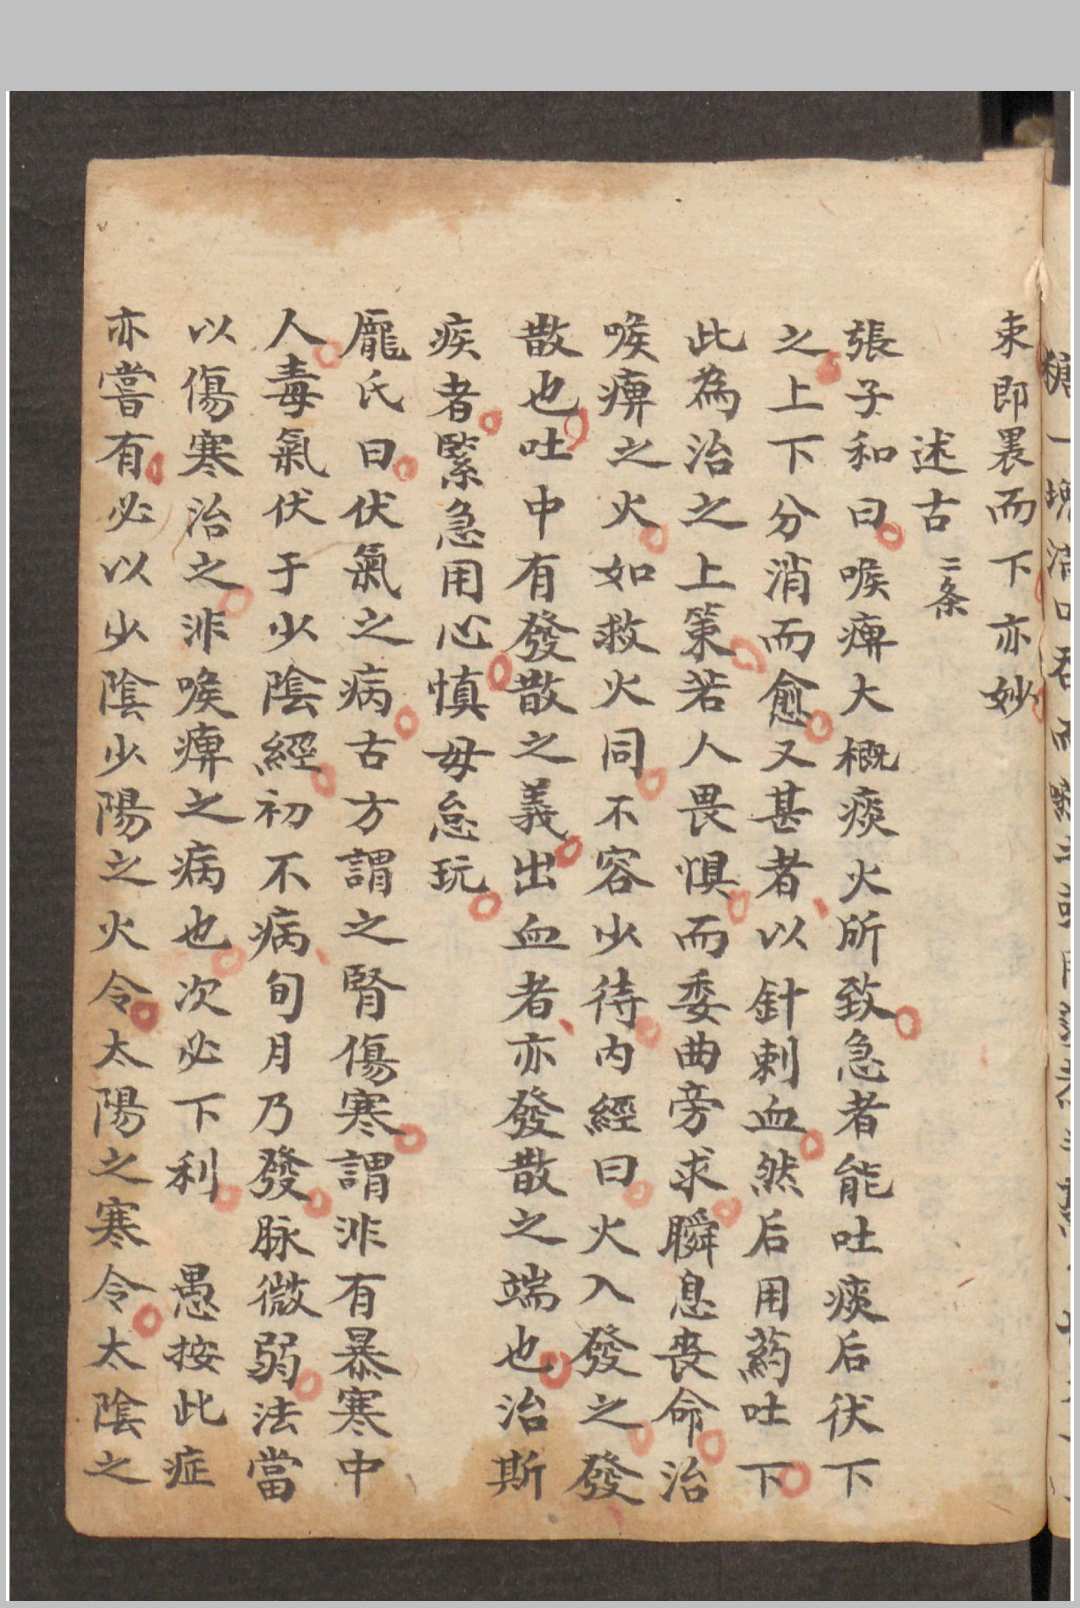 束即褁而下亦妙
述古 二条
張子和曰喉痹大概痰火所致急者能吐痰后伏下
之上下分消而愈又甚者以針刺血然后用葯吐下
此為治之上策若人畏惧而委曲旁求瞬息丧命治
喉痹之火如救火同不容少待内經曰火入發之發
散也吐中有發散之義出血者亦發散之端也治斯
疾者緊急用心慎毋怠玩
龐氏曰伏氣之病古方謂之腎傷寒謂非有暴寒中
人毒氣伏于少陰經初不病旬月乃發脉微弱法當
以傷寒治之非喉痹之病也次必下利 愚按此症
亦嘗有必以少陰少陽之火令太陽之寒令太陰之